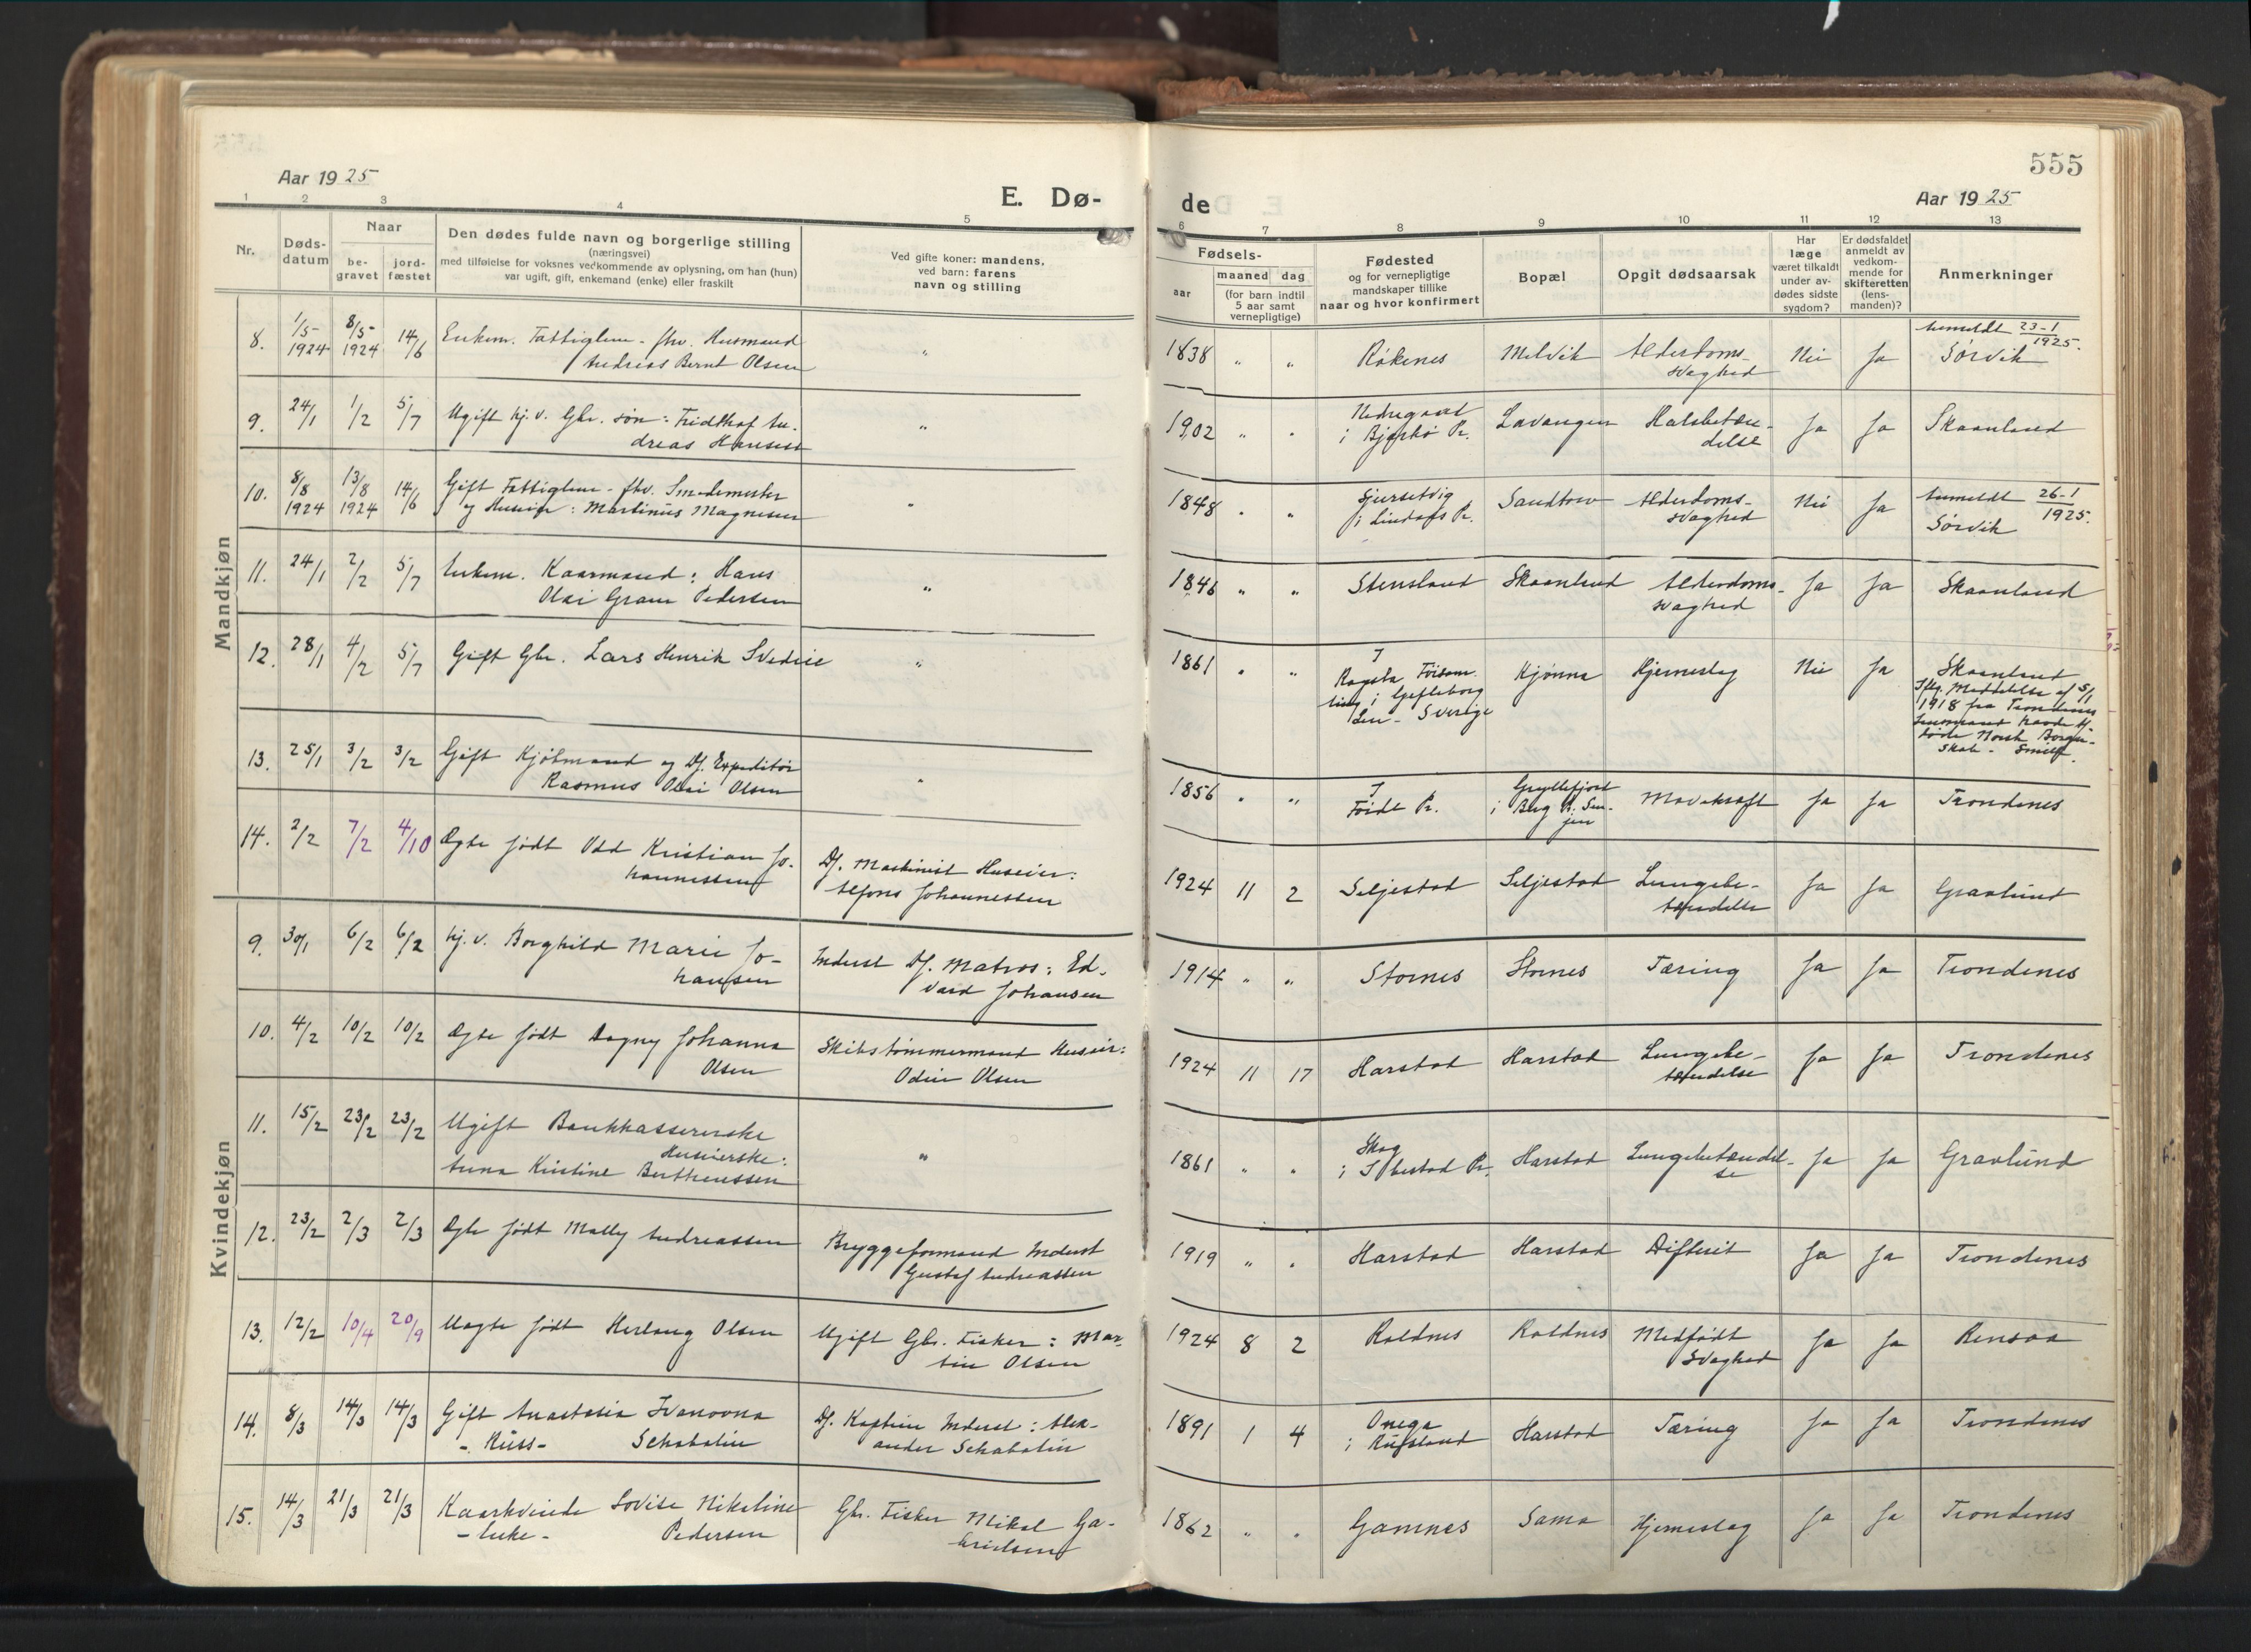 555
Aar 19 25
E. Dø-
de
Aar 19 25
1 2 3 4 5
6 7 8 9 10 11 12 13
Nr.
Døds-
datum
Naar
be-
gravet
jord-
fæstet
Den dødes fulde navn og borgerlige stilling
(næringsvei)
med tilføielse for voksnes vedkommende av oplysning, om han (hun)
var ugift, gift, enkemand (enke) eller fraskilt
Ved gifte koner: mandens,
ved barn: farens
navn og stilling
Fødsels-
aar
maaned dag
(for barn indtil
5 aar samt
vernepligtige)
Fødested
og for vernepligtige
mandskaper tillike
naar og hvor konfirmert
Bopæl
Opgit dødsaarsak
Har
læge
været tilkaldt
under av-
dødes sidste
sygdom?
Er dødsfaldet
anmeldt av
vedkom-
mende for
skifteretten
(lens-
manden)?
Anmerkninger
Mandkjøn
8. 1/5 1924 8/5 1924 14/6 Enkem. Fattiglem - fhv. Husmand
Andreas Bernt Olsen " 1838 " " Røkenes Melvik Alderdoms-
svaghed Nei Ja Anmeldt 23-1 1925.
Sørvik
9. 24/1 1/2 5/7 Ugift hj. v. Gbr. søn: Fridthof An-
dreas Hansen " 1902 " " Nedregaard
i Bjarkø Pr. Lavangen Halsbetæn-
delse Ja Ja Skaanland
10. 8/8 1924 13/8 1924 14/6 Gift Fattiglem - fhv. Smedemester
og Huseier: Martinus Magnesen " 1848 " " i Lindaas Pr. Sandtorv Alderdoms-
svaghed Nei Ja Anmeldt 26-1 1925.
Sørvik
11. 24/1 2/2 5/7 Enkem. Kaarmand: Hans
Olai Gram Pedersen " 1846 " " Stensland Skaanland Alderdoms-
svaghed Ja Ja Skaanland
12. 28/1 4/2 5/7 Gift Gbr. Lars Henrik " 1861 " "
i Gefleborg
Len - Sverige Kjønna Hjerneslag Nei Ja Skaanland
Iflg. Meddelelse af 5/1
1918 fra Trondenes
Lensmand havde Af-
døde Norsk Borger-
skab.
13. 25/1 3/2 3/2 Gift Kjøbmand og Df. Expeditør
Rasmus Olai Olsen " 1856 " " I
Førde Pr. Gryllefjord
i Berg Pr. Sen-
jen Mavekræft Ja Ja Trondenes
14. 2/2 7/2 4/10 Ægte født Odd Kristian Jo-
hannessen Df. Maskinist Huseier:
Alfons Johannessen 1924 11 2 Seljestad Seljestad Lungebe-
tændelse Ja Ja Gravlund
Kvindekjøn
9. 30/1 6/2 6/2 hj. v. Borghild Marie Jo-
hansen Inderst Df. Matros: Ed-
vard Johansen 1914 " " Stornes Stornes Tæring Ja Ja Trondenes
10. 4/2 10/2 10/2 Ægte født Dagny Johanna
Olsen Skibstømmermand Huseier:
Odin Olsen 1924 11 17 Harstad Harstad Lungebe-
tændelse Ja Ja Trondenes
11. 15/2 23/2 23/2 Ugift Bankkassererske
Huseierske:
Anna Kristine Bertheussen " 1861 " " Skog
i Ibestad Pr. Harstad Lungebetændel-
se Ja Ja Gravlund
12. 23/2 2/3 2/3 Ægte født Molly Andreassen Bryggeformand Inderst
Gustaf Andreassen 1919 " " Harstad Harstad Difterit Ja Ja Trondenes
13. 12/2 10/4 20/9 Uægte født Herlaug Olsen Ugift Gbr. Fisker: Mar-
tin Olsen 1924 8 2 Roldnes Roldnes Medfødt
Svaghed Ja Ja Rensaa
14. 8/3 14/3 14/3 Gift Anastasia Ivanovna
- Russ - Schabalin Df. Kaptein Inderst: Alex-
ander Schabalin 1891 1 4 Onega
i Rusland Harstad Tæring Ja Ja Trondenes
15. 14/3 21/3 21/3 Kaarkvinde Lovise Nikoline
- Enke - Pedersen Gbr. Fisker Mikal Ga-
brielsen 1862 " " Gamnes Sama Hjerneslag Ja Ja Trondenes